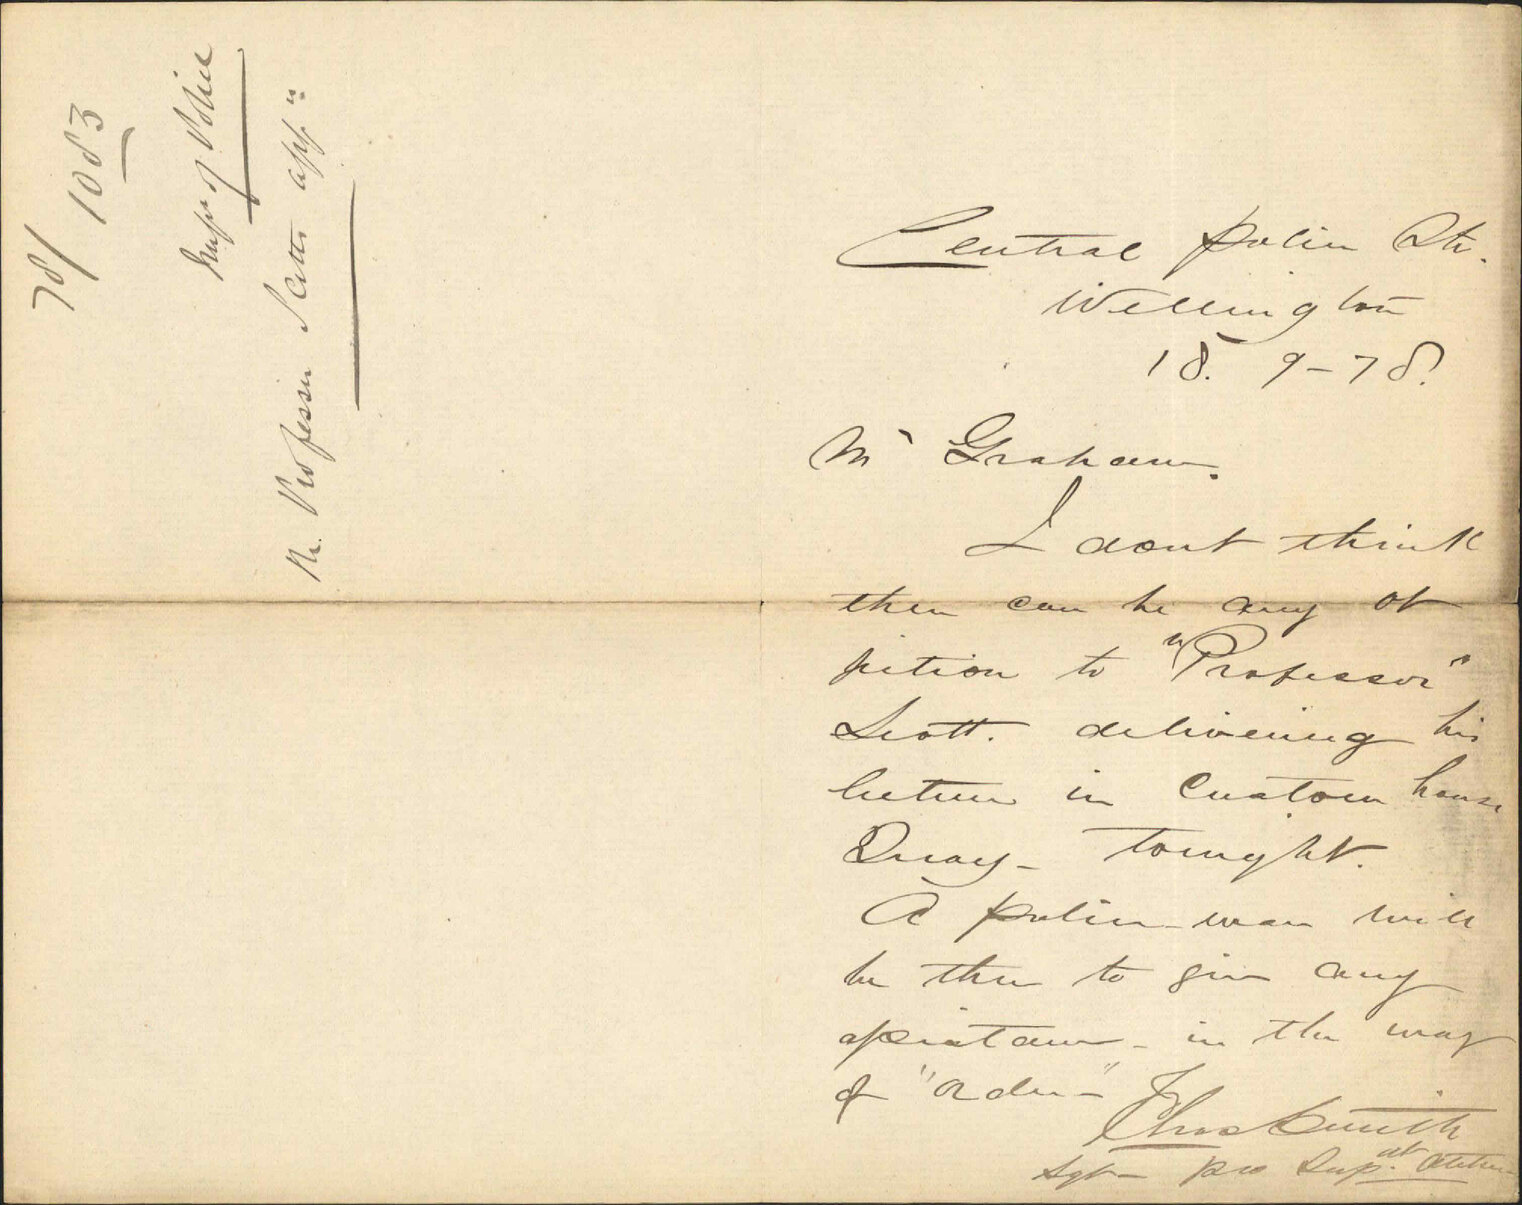 78/1083
Supr of Police
Re. Professor Scotts appn
Central Police Stn.
Wellington
18. 9-78.
Mr Graham.
I dont think
there can be any ob
jition to "Professor"
Scott. delivering his
lecture in Custom house
Quay - tonight.
A police-man will
be there to give any
assistance - in the way
of "order"
Thos Smith
Sgt - pro Supat